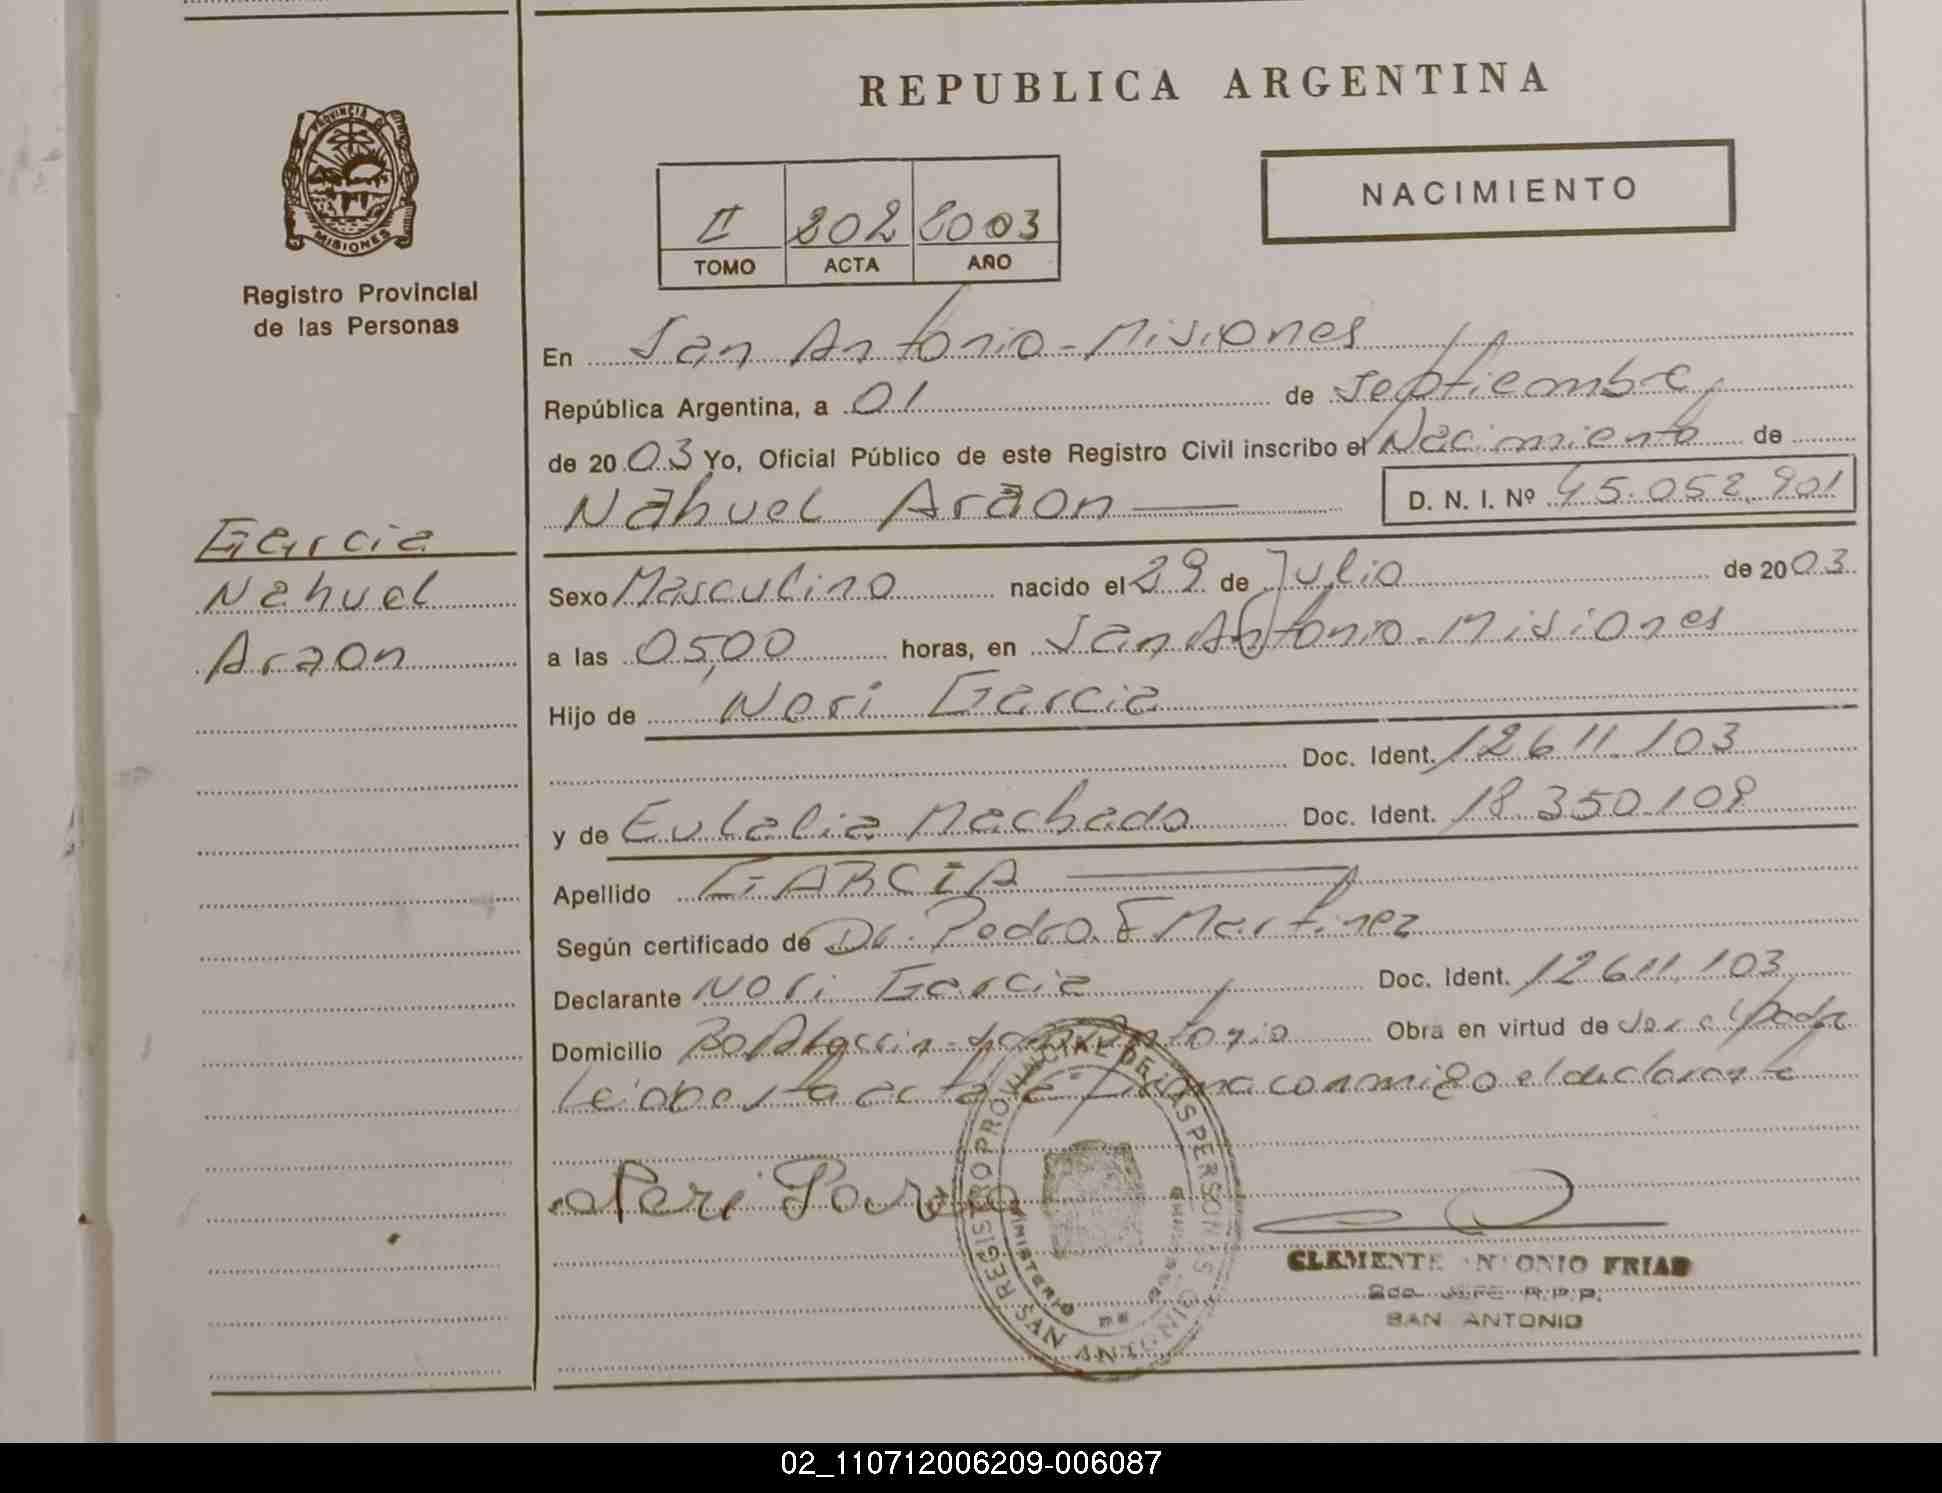 REPUBLICA ARGENTINA
PROVINCIA DE
MISIONES
Registro Provincial
de las Personas
NACIMIENTO
II 202 2003
TOMO ACTA AÑO
En San Antonio - Misiones
República Argentina, a 01 de Septiembre,
de 2003 Yo, Oficial Público de este Registro Civil inscribo el Nacimiento de
Nahuel Araon D. N. I. Nº 45.052.901
Garcia
Nahuel
Araon
Sexo Masculino nacido el 29 de Julio de 2003
a las 05,00 horas, en San Antonio - Misiones
Hijo de Neri Garcia
Doc. Ident. 12611.103
y de Eulalia Machado Doc. Ident. 18.350.109
Apellido GARCIA
Según certificado de Dr. Pedro E Martinez
Declarante Nori Garcia Doc. Ident. 12611.103
Domicilio San Antonio Obra en virtud de ser el Padre
Leida esta acta la firma conmigo el declarante
Neri Garcia
REGISTRO PROVINCIAL DE LAS PERSONAS
MINISTERIO DE GOBIERNO
SAN ANTONIO
CLEMENTE ANTONIO FRIAS
2do. JEFE R.P.P.
SAN ANTONIO
02_110712006209-006087